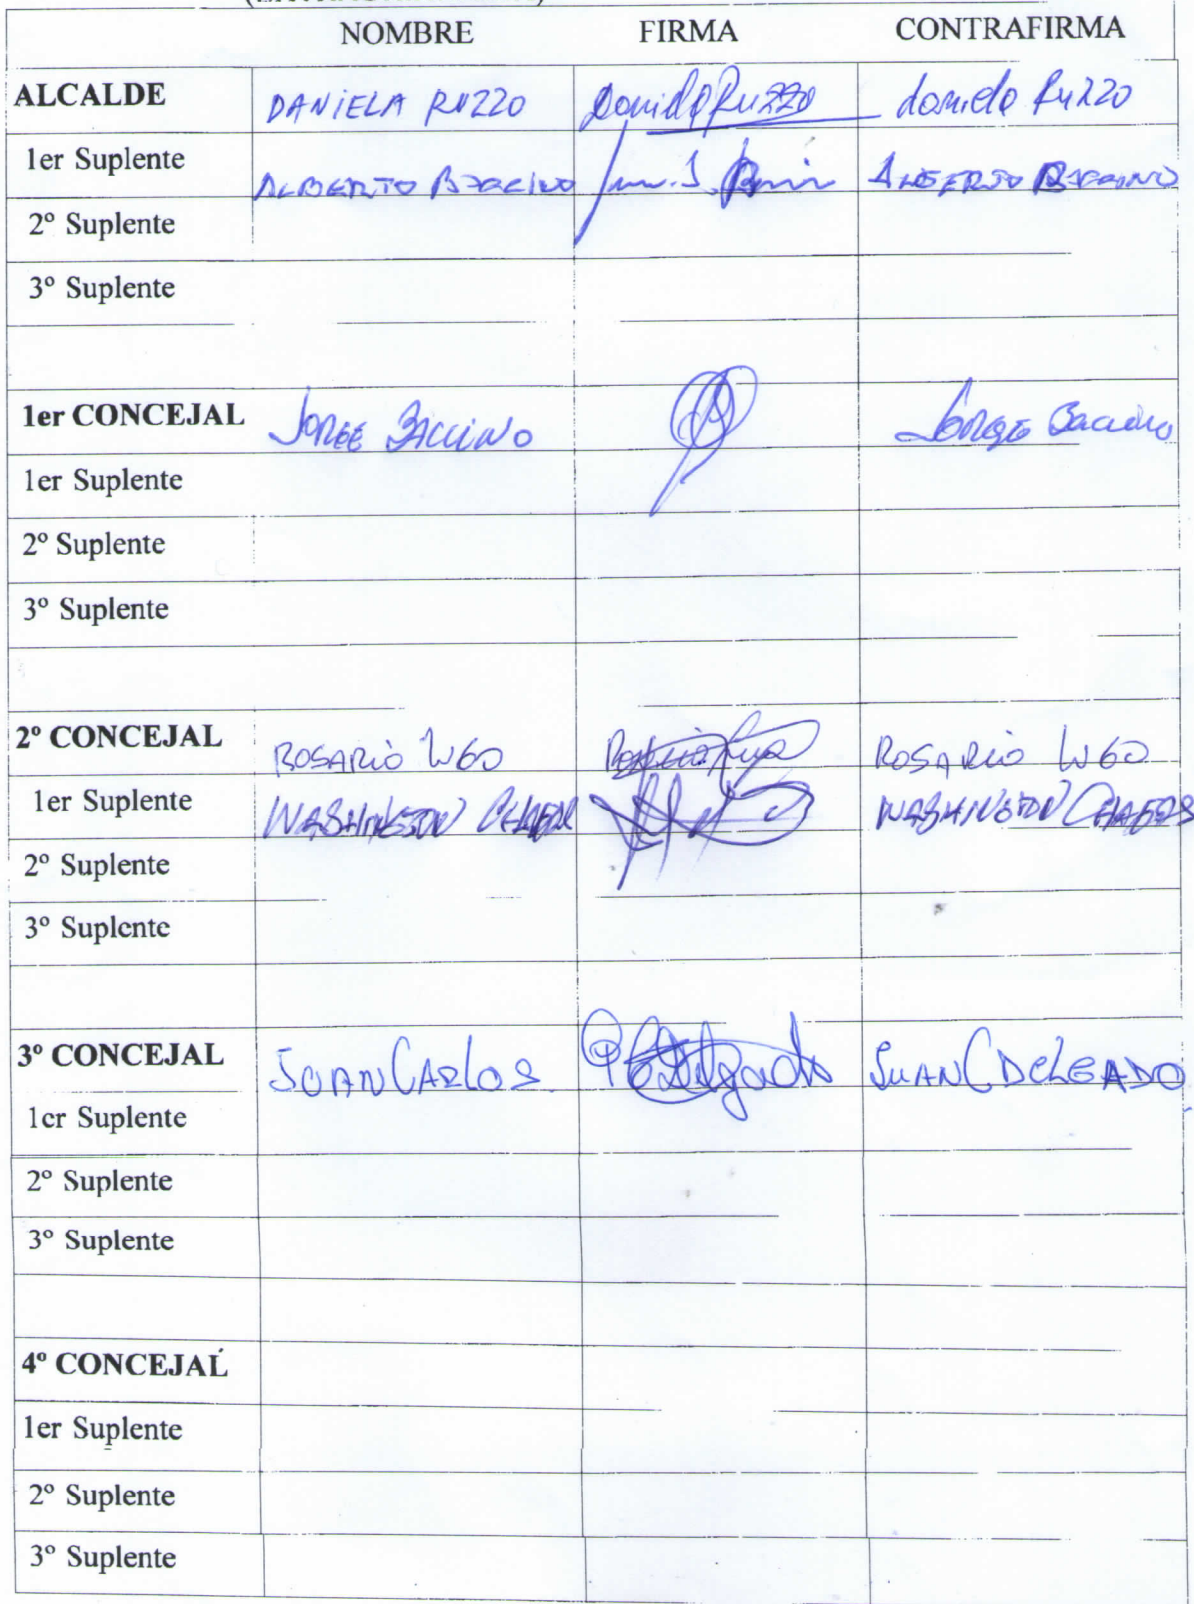 NOMBRE FIRMA CONTRAFIRMA
ALCALDE DANIELA RUZZO Daniela Ruzzo Daniela Ruzzo
1er Suplente ALBERTO BACCINO ALBERTO BACCINO
2º Suplente
3º Suplente
1er CONCEJAL JORGE BACCINO JORGE Baccino
1er Suplente
2º Suplente
3º Suplente
2º CONCEJAL ROSARIO LUGO ROSARIO LUGO
1er Suplente WASHINGTON WASHINGTON
2º Suplente
3º Suplente
3º CONCEJAL JUAN CARLOS Delgado JUAN C DELGADO
1er Suplente
2º Suplente
3º Suplente
4º CONCEJAL
1er Suplente
2º Suplente
3º Suplente